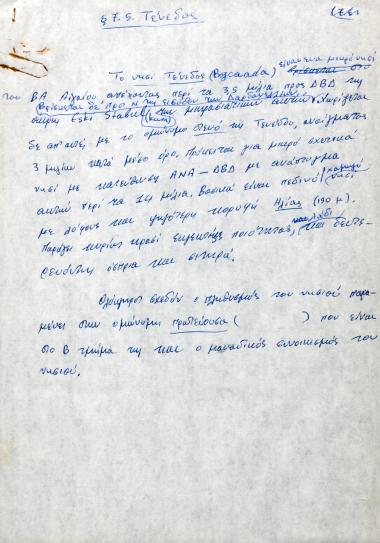 § 7.5. Τένεδος
Το νησί Τένεδος (Bozcaada) είναι ένα μικρό νησί
του ΒΑ Αιγαίου απέχοντας περί τα 3,5 μίλια προς ΔΒΔ της
(Βρίσκεται δε προς Ν της εισόδου των Δαρδανελλίων)
άκρης Eski Stabul (της μικρασιατικών ακτών. Χωρίζεται
δε απ' αυτές, με το ομώνυμο Στενό της Τενέδου, ανοίγματος
3 μιλίων κατά μέσο όρο. Πρόκειται για μικρό σχετικά
νησί με κατεύθυνση ΑΝΑ – ΔΒΔ με ανάπτυγμα
ακτών περί τα 14 μίλια. Βασικά είναι πεδινό, χαμηλό νησί
με λόφους και ψηλότερη κορυφή Ηλίας (190 μ).
Παράγει κυρίως κρασί εκλεκτής ποιότητας, και λάδι και δευτε-
ρευόντως όσπρια και σιτηρά.
Ολόκληρος σχεδόν ο πληθυσμός του νησιού παρα-
μένει στην ομώνυμη πρωτεύουσα ( ) που είναι
στο Β τμήμα της και ο μοναδικός συνοικισμός του
νησιού.